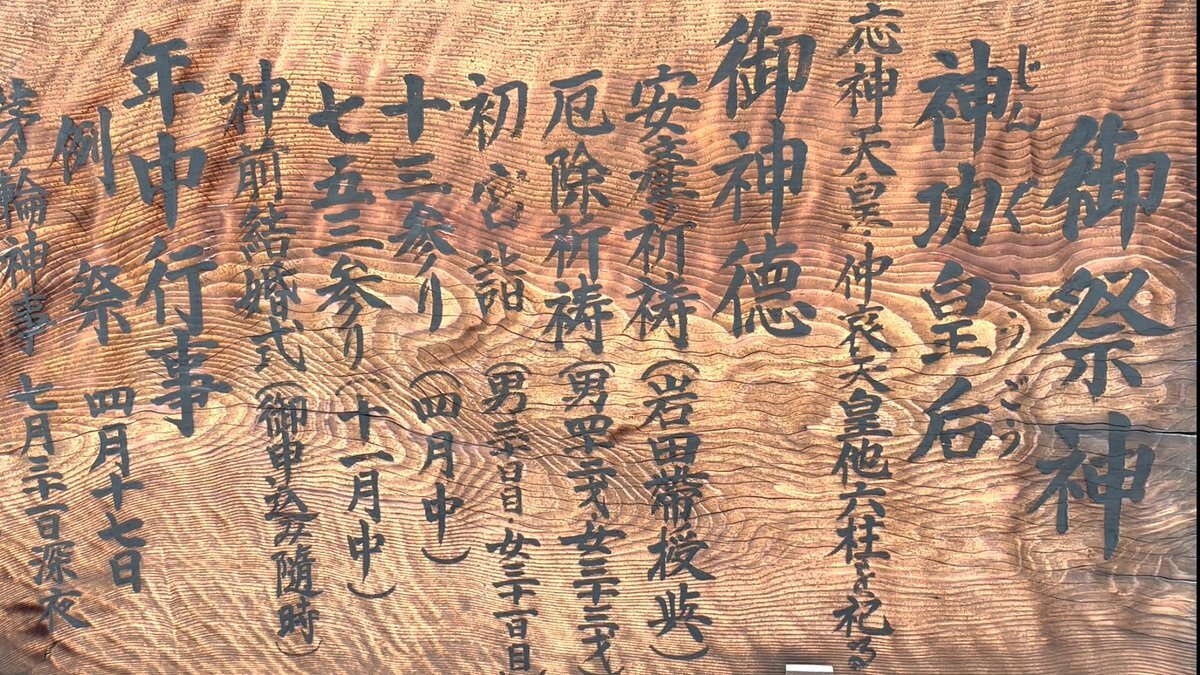 御祭神
じんぐうこうごう
神功皇后
応神天皇・仲哀天皇他六柱を祀る
御神徳
安産祈祷(岩田帯授与)
厄除祈祷(男四二才女三十三才
初宮詣(男三十日目・女三十一日目
十三参り(四月中)
七五三参り(十一月中)
神前結婚式(御申込み随時)
年中行事
例祭 四月十七日
茅輪神事 七月三十一日深夜